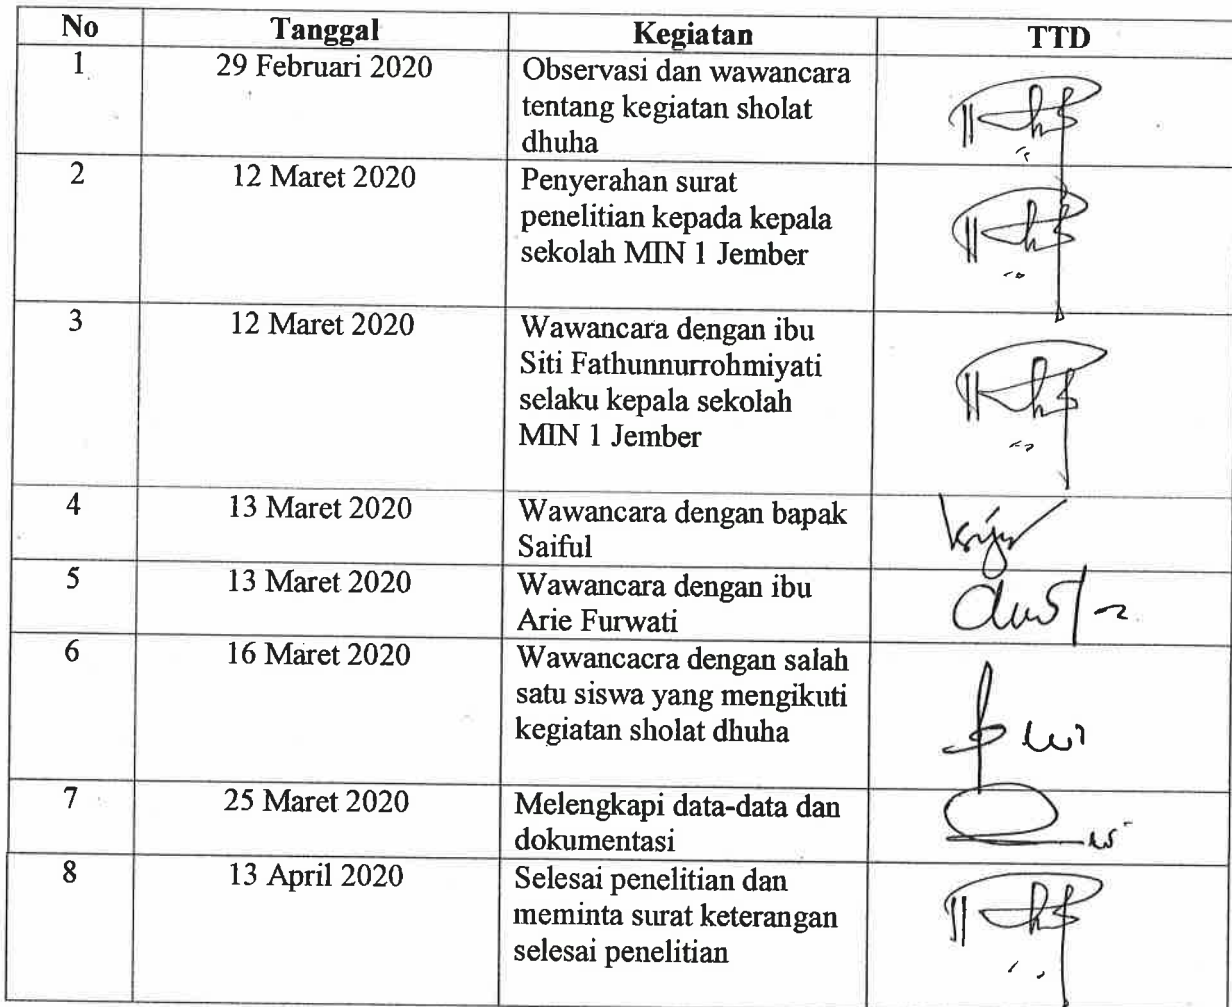 No Tanggal Kegiatan TTD
1 29 Februari 2020 Observasi dan wawancara
tentang kegiatan sholat
dhuha
2 12 Maret 2020 Penyerahan surat
penelitian kepada kepala
sekolah MIN 1 Jember
3 12 Maret 2020 Wawancara dengan ibu
Siti Fathunnurrohmiyati
selaku kepala sekolah
MIN 1 Jember
4 13 Maret 2020 Wawancara dengan bapak
Saiful
5 13 Maret 2020 Wawancara dengan ibu
Arie Furwati
6 16 Maret 2020 Wawancacra dengan salah
satu siswa yang mengikuti
kegiatan sholat dhuha
7 25 Maret 2020 Melengkapi data-data dan
dokumentasi
8 13 April 2020 Selesai penelitian dan
meminta surat keterangan
selesai penelitian